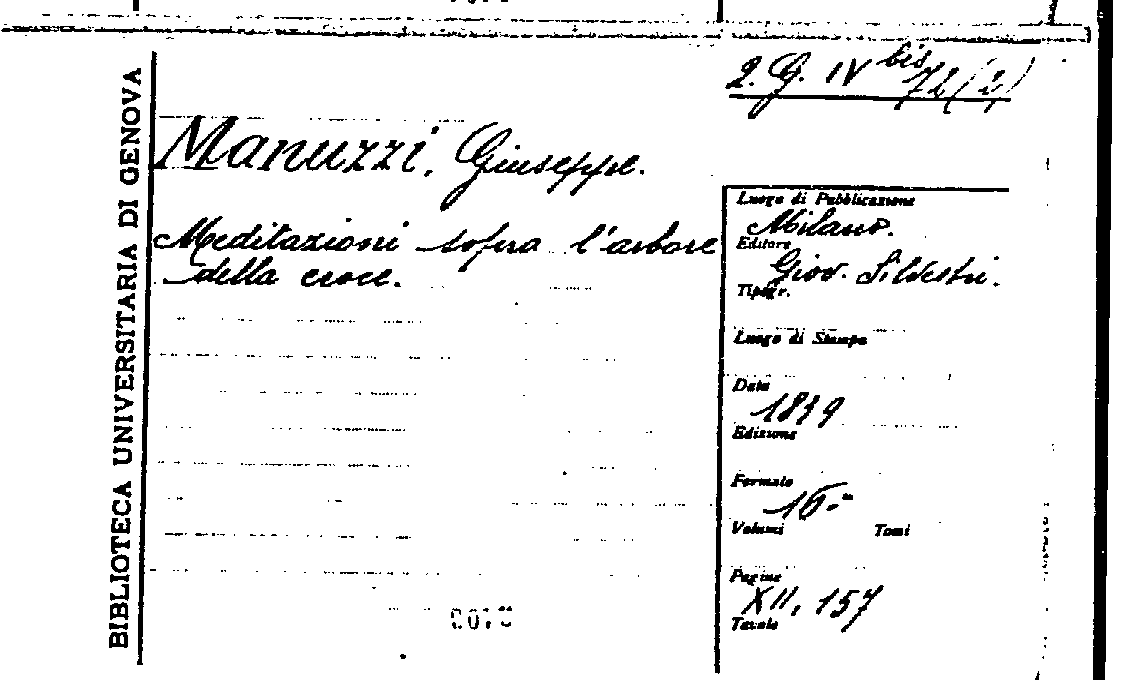 BIBLIOTECA UNIVERSITARIA DI GENOVA
2. G. IV bis 72 (2)
Manuzzi, Giuseppe.
Meditazioni sopra l'arbore
della croce.
Luogo di Pubblicazione
Milano.
Editore
Giov. Silvestri.
Tipogr.
Luogo di Stampa
Data
1839
Edizione
Formato
16.º
Volumi Tomi
Pagine
XII, 157
Tavole